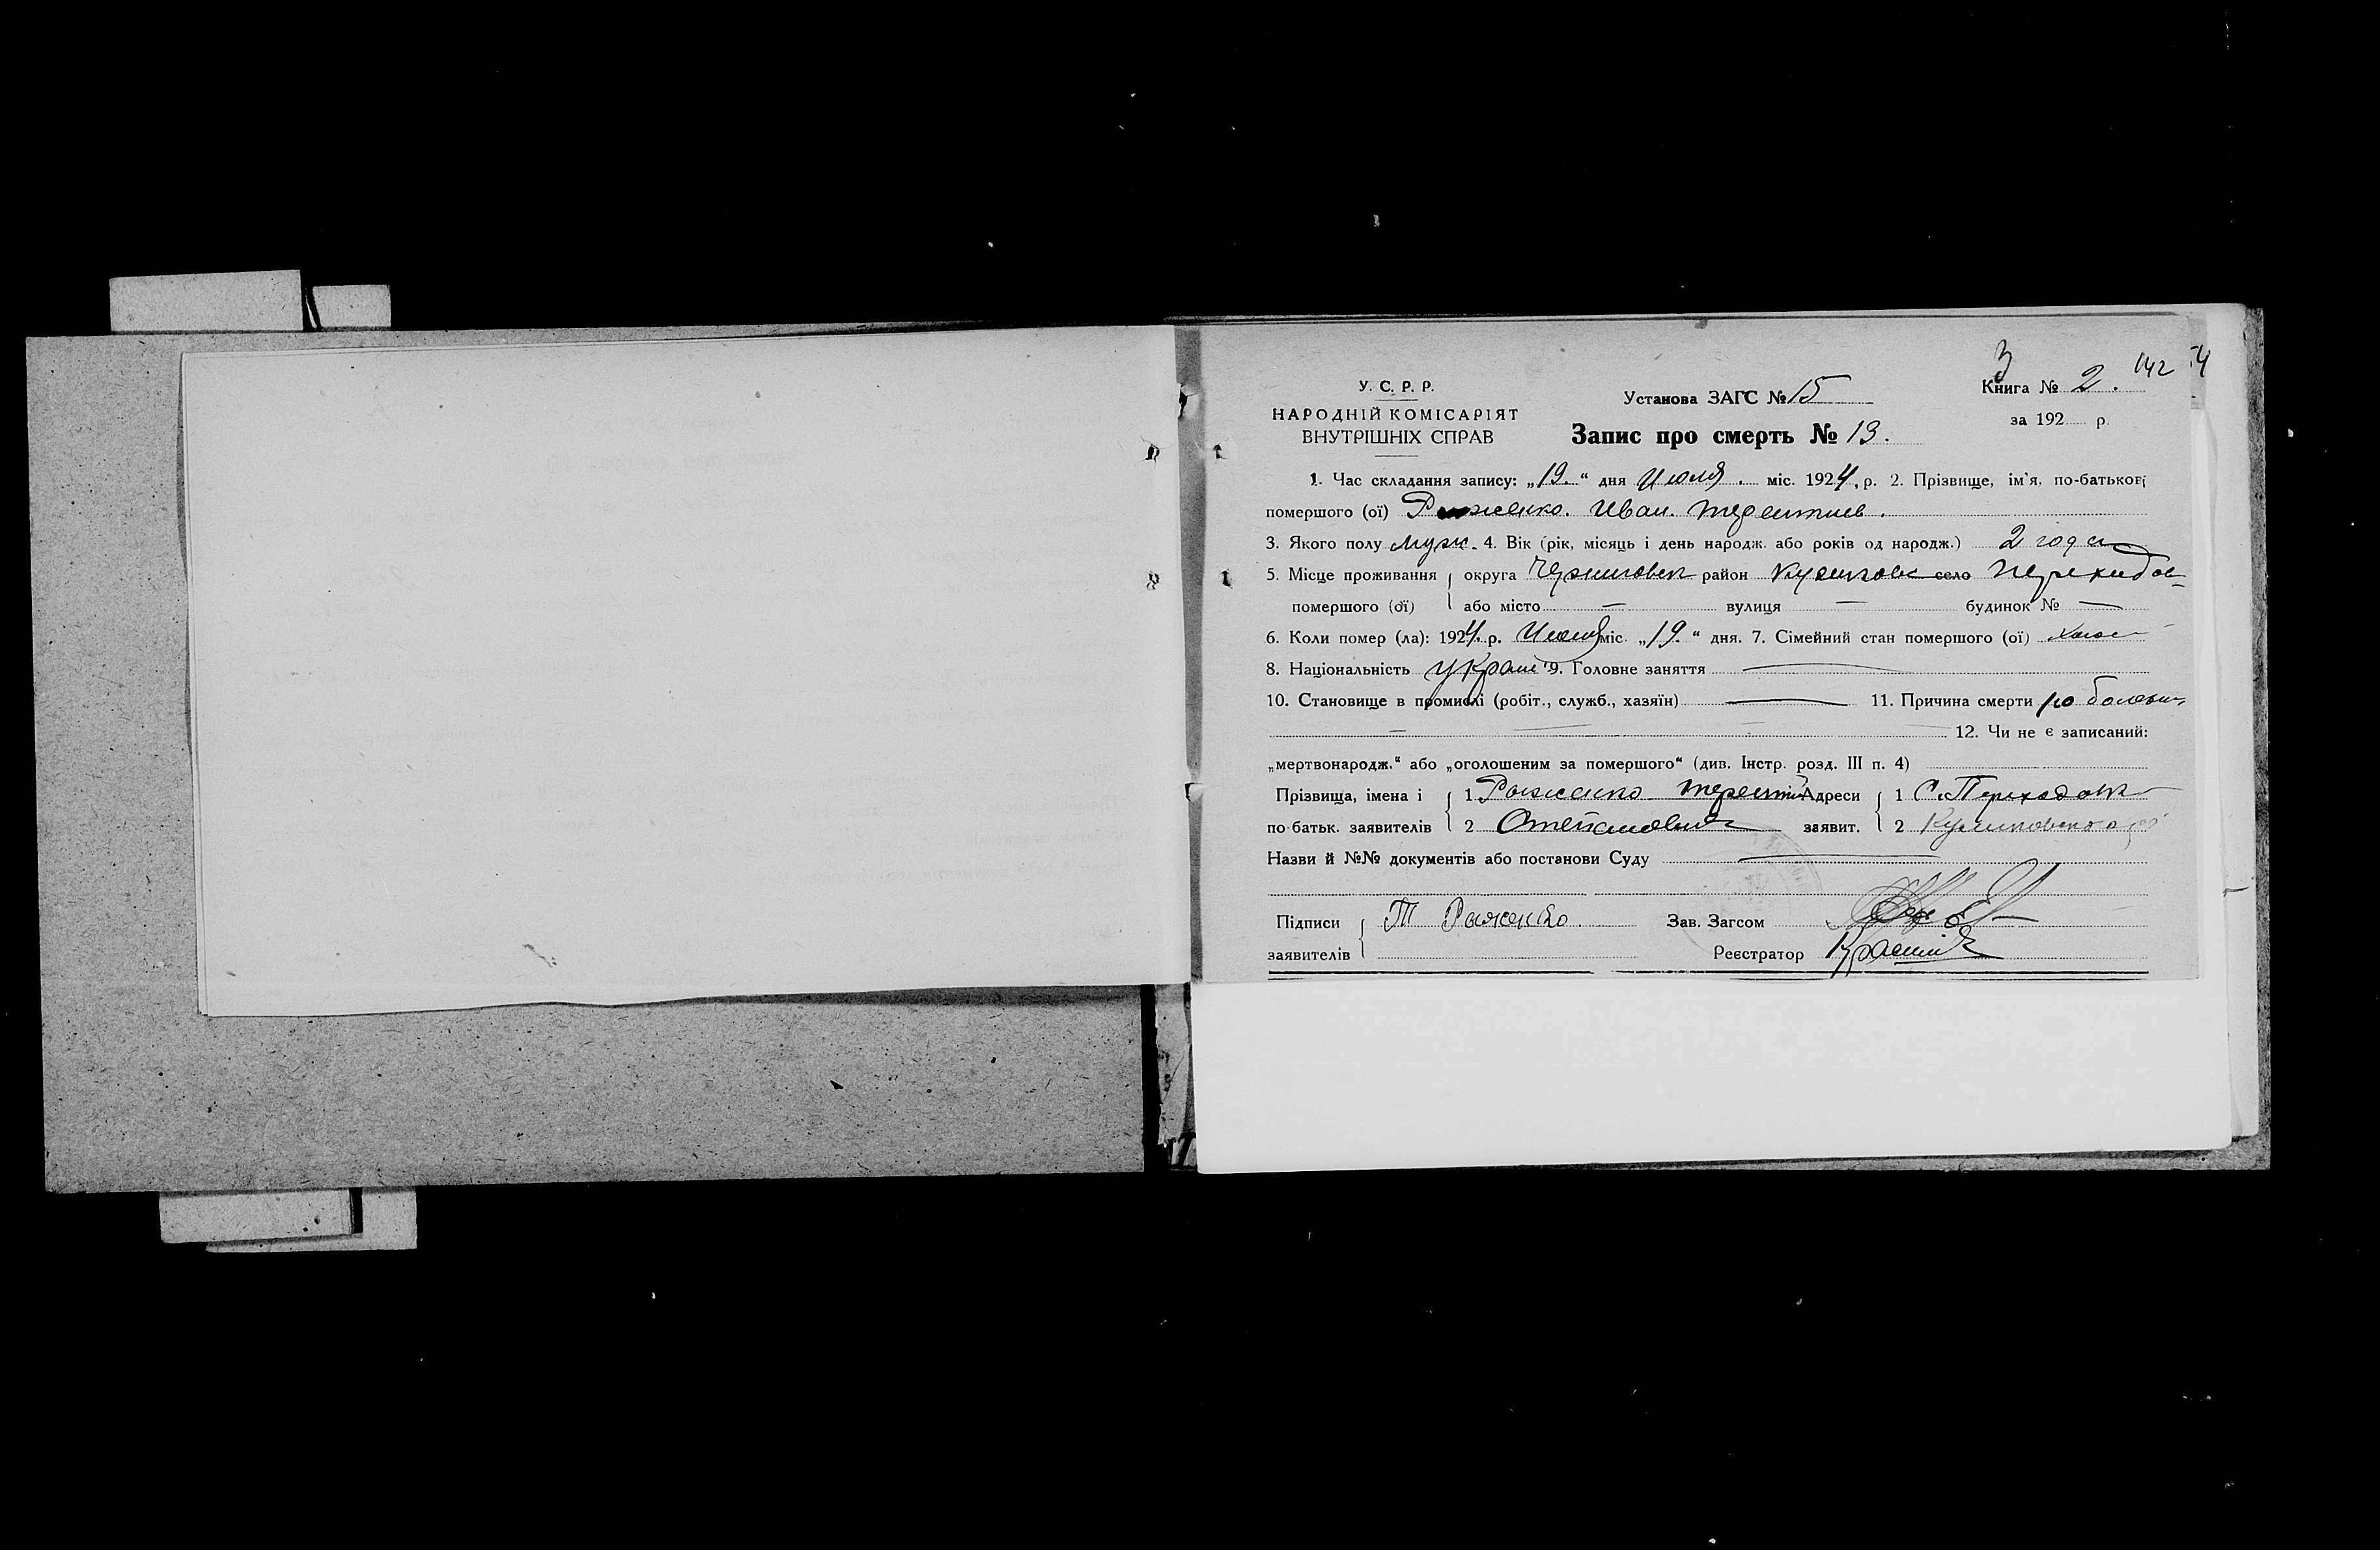 3
142
У. С. Р. Р.
Установа ЗАГС № 15
Книга № 2.
НАРОДНІЙ КОМІСАРІЯТ
за 192 р.
ВНУТРІШНІХ СПРАВ
Запис про смерть № 13.
1. Час складання запису: „19.“ дня Июля. міс. 1924. р. 2. Прізвище, ім'я, по-батькові
помершого (ої) Иван. Терентиев.
3. Якого полу муж. 4. Вік (рік, місяць і день народж. або років од народж.) 2 года
5. Місце проживання округа Черниговск район Куликовс село
помершого (ої) або місто — вулиця — будинок № —
6. Коли помер (ла): 1924. р. Июля міс. „19.“ дня. 7. Сімейний стан помершого (ої)
8. Національність Украін 9. Головне заняття —
10. Становище в промислі (робіт., служб., хазяїн) — 11. Причина смерти
12. Чи не є записаний:
„мертвонародж.“ або „оголошеним за помершого“ (див. Інстр. розд. III п. 4)
Прізвища, імена і 1 Роженко Терентий Адреси 1 С. Переходовк
по батьк. заявителів 2 Степанович заявит. 2
Назви й №№ документів або постанови Суду —
Підписи Т Роженко Зав. Загсом
заявителів Реєстратор